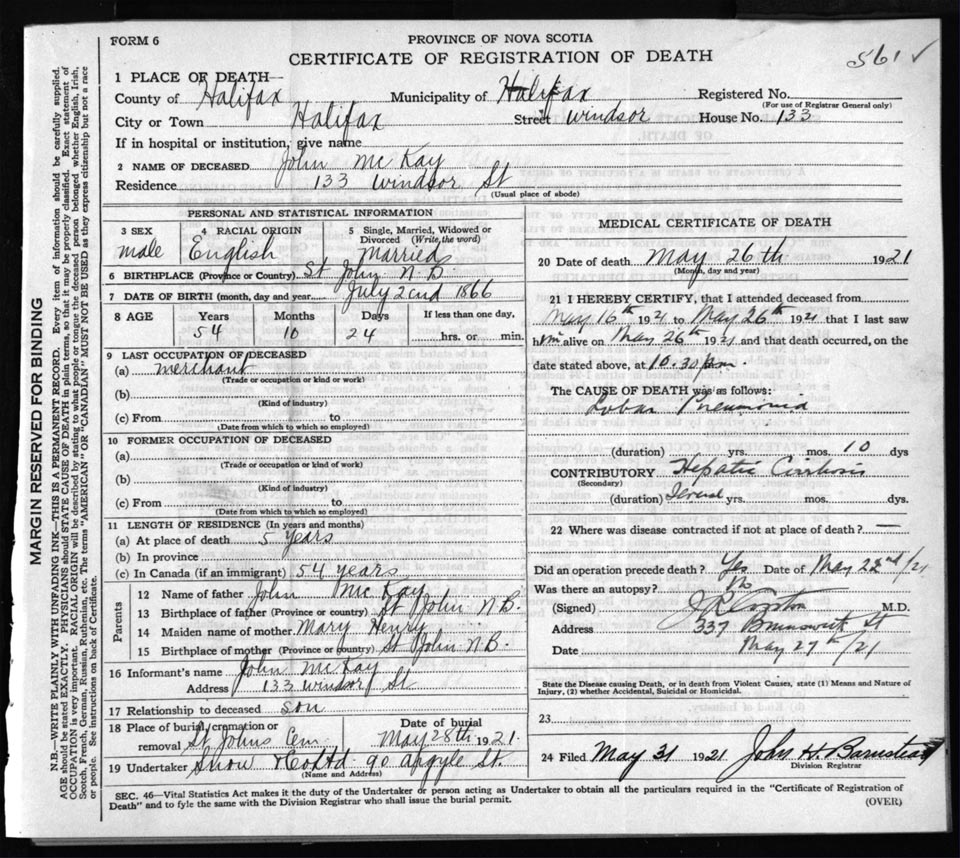 FORM 6
PROVINCE OF NOVA SCOTIA
CERTIFICATE OF REGISTRATION OF DEATH
561 ✓
1 PLACE OF DEATH—
County of Halifax Municipality of Halifax Registered No.
(For use of Registrar General only)
City or Town Halifax Street Windsor House No. 133
If in hospital or institution, give name
2 NAME OF DECEASED John Mc Kay
Residence 133 Windsor St
(Usual place of abode)
PERSONAL AND STATISTICAL INFORMATION
3 SEX male
4 RACIAL ORIGIN English
5 Single, Married, Widowed or Divorced (Write the word) Married
6 BIRTHPLACE (Province or Country) St John N.B.
7 DATE OF BIRTH (month, day and year) July 2cnd 1866
8 AGE Years Months Days If less than one day,
54 10 24 hrs. or min.
9 LAST OCCUPATION OF DECEASED
(a) merchant
(Trade or occupation or kind of work)
(b)
(Kind of industry)
(c) From to
(Date from which to which so employed)
10 FORMER OCCUPATION OF DECEASED
(a)
(Trade or occupation or kind of work)
(b)
(Kind of industry)
(c) From to
(Date from which to which so employed)
11 LENGTH OF RESIDENCE (In years and months)
(a) At place of death 5 years
(b) In province
(c) In Canada (if an immigrant) 54 years
Parents
12 Name of father John Mc Kay
13 Birthplace of father (Province or country) St John N.B.
14 Maiden name of mother Mary Henry
15 Birthplace of mother (Province or country) St John N.B.
16 Informant's name John McKay
Address 133 Windsor St
17 Relationship to deceased son
18 Place of burial, cremation or removal St Johns Cem
Date of burial May 28th 1921.
19 Undertaker Snow & Co Ltd 90 Argyle St.
(Name and Address)
MEDICAL CERTIFICATE OF DEATH
20 Date of death May 26th 1921
(Month, day and year)
21 I HEREBY CERTIFY, that I attended deceased from
May 16th 1921 to May 26th 1921 that I last saw
him alive on May 26th 1921 and that death occurred, on the
date stated above, at 10.30 pm
The CAUSE OF DEATH was as follows:
Lobar Pneumonia
(duration) yrs. mos. 10 dys
CONTRIBUTORY Hepatic Cirrhosis
(Secondary)
(duration) Several yrs. mos. dys.
22 Where was disease contracted if not at place of death? —
Did an operation precede death? Yes Date of May 22nd/21
Was there an autopsy? No
(Signed) M.D.
Address 337 Brunswick St
Date May 27th/21
State the Disease causing Death, or in death from Violent Causes, state (1) Means and Nature of
Injury, (2) whether Accidental, Suicidal or Homicidal.
23
24 Filed May 31 1921 John H. Barnstead
Division Registrar
SEC. 46—Vital Statistics Act makes it the duty of the Undertaker or person acting as Undertaker to obtain all the particulars required in the "Certificate of Registration of
Death" and to fyle the same with the Division Registrar who shall issue the burial permit.
(OVER)
MARGIN RESERVED FOR BINDING
N.B.—WRITE PLAINLY WITH UNFADING INK—THIS IS A PERMANENT RECORD. Every item of information should be carefully supplied.
AGE should be stated EXACTLY. PHYSICIANS should STATE CAUSE OF DEATH in plain terms, so that it may be properly classified. Exact statement of
OCCUPATION is very important. RACIAL ORIGIN will be described by stating to what people or tongue the deceased person belonged whether English, Irish,
Scotch, French, German, Russian, Ruthenian, etc. The terms "AMERICAN" OR "CANADIAN" MUST NOT BE USED as they express citizenship but not a race
or people. See instructions on back of Certificate.